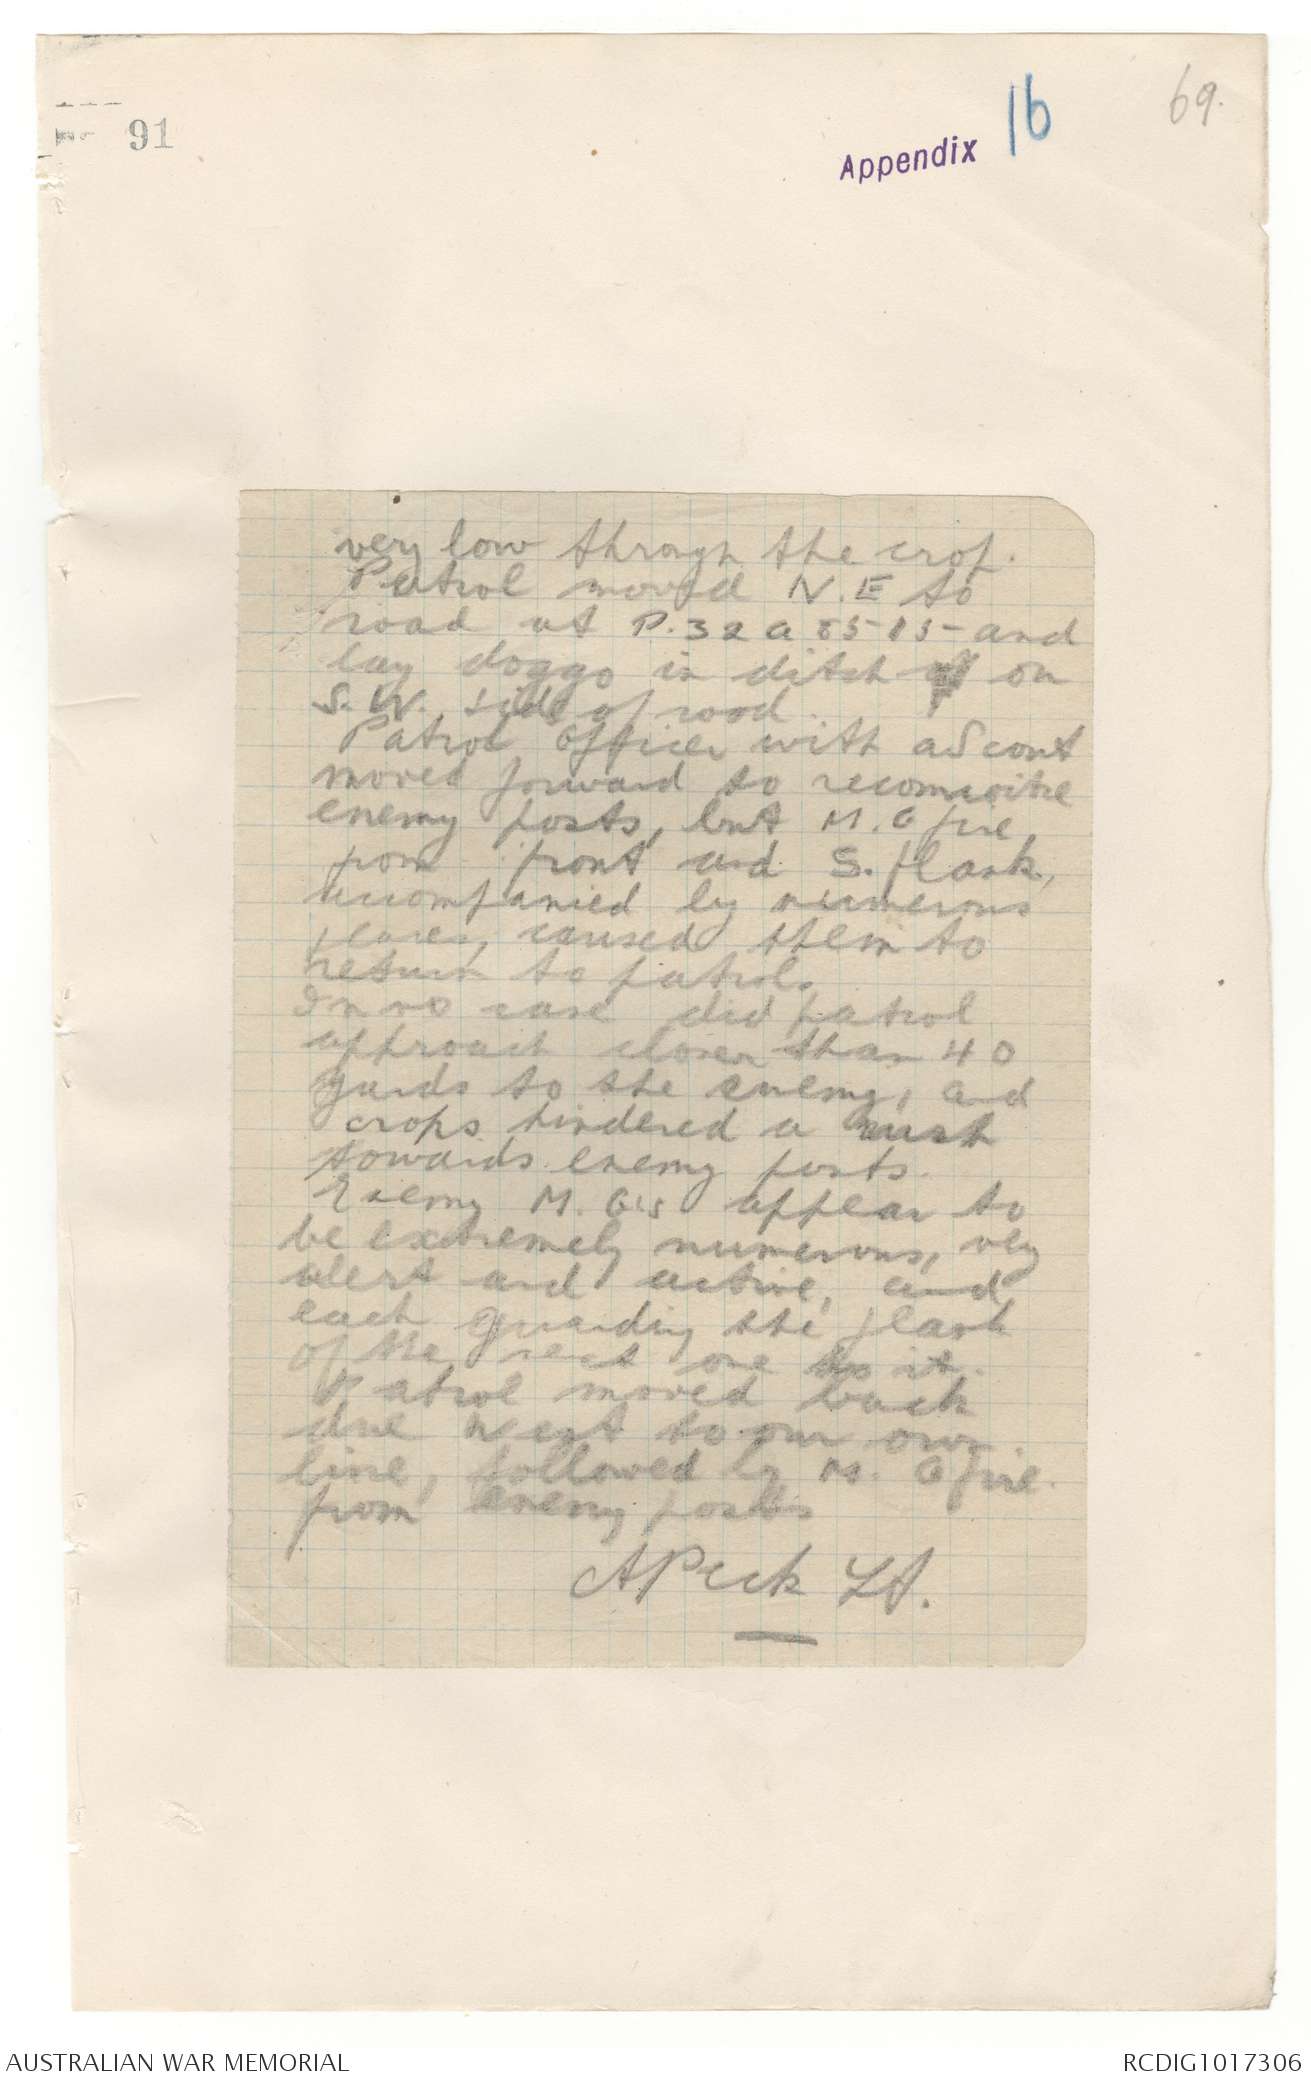 91
Appendix 16
69.
very low through the crop.
Patrol moved N.E to
road at P.32 a 85-15- and
lay doggo in ditch on
S.W. side of road.
Patrol Officer with a Scout
moved forward to reconnoitre
enemy posts, but M.G fire,
from front and S. flank,
accompanied by numerous
flares, caused them to
return to patrol.
In no case did patrol
approach closer than 40
yards to the enemy, and
crops hindered a rush
towards enemy posts.
Enemy M. G's appear to
be extremely numerous, very
alert and active, and
each guarding the flank
of the next one to it.
Patrol moved back
due West to our own
line, followed by M. G fire.
from enemy posts
A Peck Lt.
AUSTRALIAN WAR MEMORIAL
RCDIG1017306